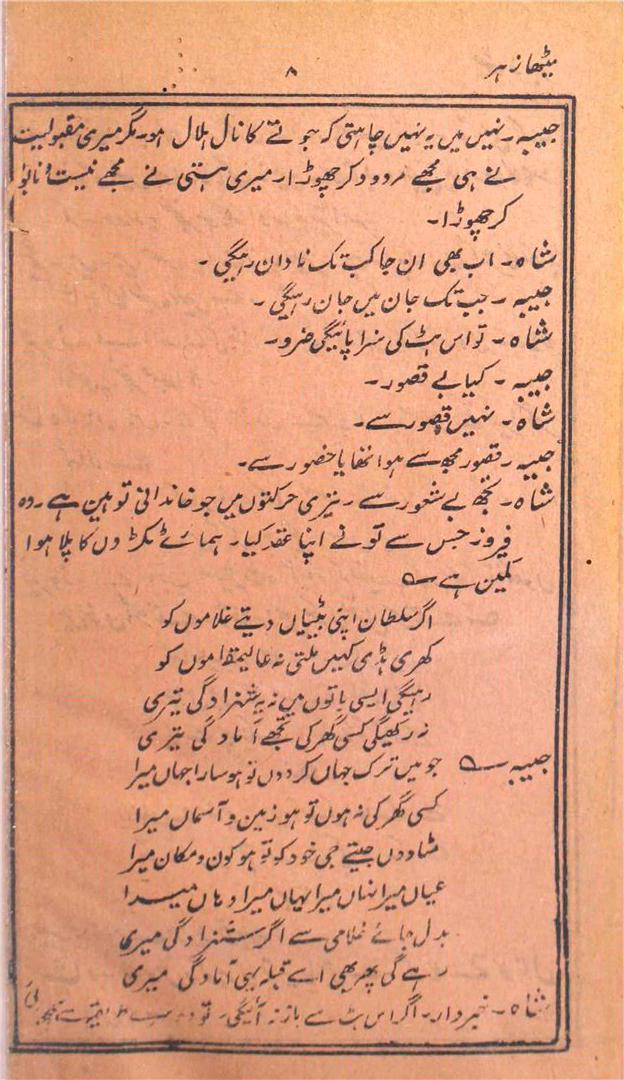 میٹھا زہر
۸
حبیبہ۔ نہیں میں یہ نہیں چاہتی کہ جوتے کا نال ہلال ہو۔ مگر میری مقبولیت
نے ہی مجھے مردود کر چھوڑا۔ میری ہستی نے مجھے نیست و نابود
کر چھوڑا۔
شاہ۔ اب بھی ان جا کب تک نادان رہیگی۔
حبیبہ۔ جب تک جان میں جان رہیگی۔
شاہ۔ تو اس ہٹ کی سزا پائیگی ضرور۔
حبیبہ۔ کیا بے قصور۔
شاہ۔ نہیں قصور سے۔
حبیبہ۔ قصور مجھ سے ہوا تھا یا حضور سے۔
شاہ۔ تجھ بے شعور سے۔ تیری حرکتوں میں جو خاندانی توہین ہے۔ وہ
فیروز جس سے تو نے اپنا عقد کیا۔ ہمارے ٹکڑوں کا پلا ہوا
کمین ہے ؎
اگر سلطان اپنی بیٹیاں دیتے غلاموں کو
کھری ہڈی کہیں ملتی نہ عالیمقاموں کو
رہیگی ایسی باتوں میں نہ یہ شہزادگی تیری
نہ رکھیگی کسی گھر کی تجھے آمادگی تیری
حبیبہ ؎ جو میں ترک جہاں کر دوں تو ہو سارا جہاں میرا
کسی گھر کی نہ ہوں تو ہو زمین و آسماں میرا
مٹا دوں جیتے جی خود کو تو ہو کون و مکان میرا
عیاں میرا نہاں میرا یہاں میرا وہاں میرا
بدل جائے غلامی سے اگر شہزادگی میری
رہے گی پھر بھی اے قبلہ یہی آمادگی میری
شاہ۔ خبردار۔ اگر اس ہٹ سے باز نہ آئیگی۔ تو